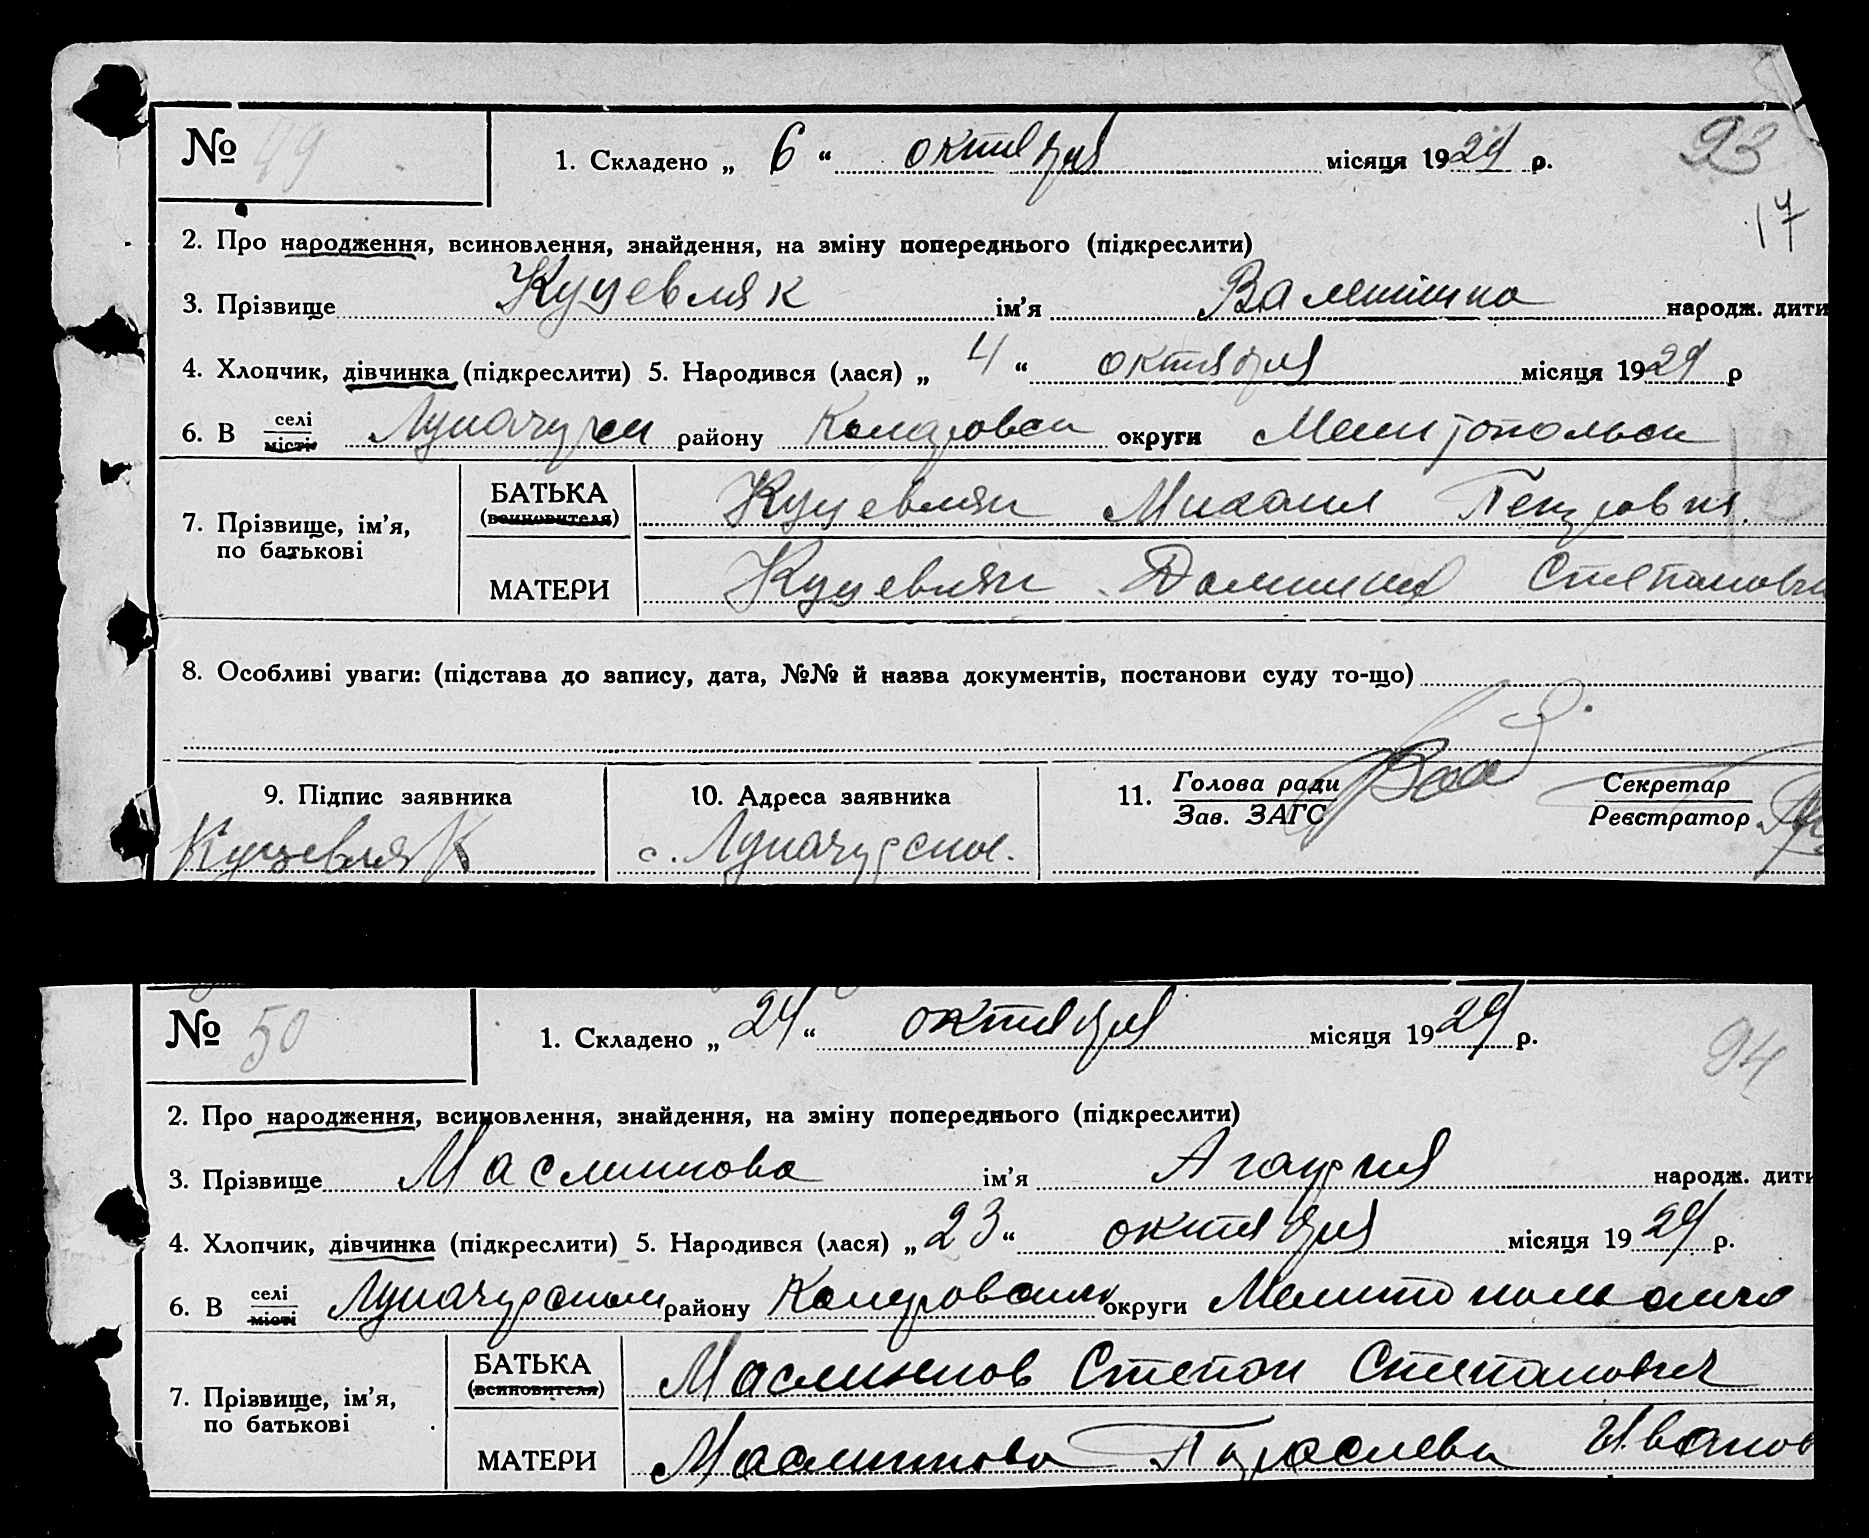 № 49
1. Складено „ 6 “ октября місяця 1929 р.
93
17
2. Про народження, всиновлення, знайдення, на зміну попереднього (підкреслити)
3. Прізвище Куцевляк ім'я Валентина народж. дити
4. Хлопчик, дівчинка (підкреслити) 5. Народився (лася) „ 4 “ октября місяця 1929 р
6. В селі місті району округи
7. Прізвище, ім'я, по батькові
БАТЬКА (всиновителя) Куцевляк Михаил Петрович.
МАТЕРИ Куцевляк Степанов
8. Особливі уваги: (підстава до запису, дата, №№ й назва документів, постанови суду то-що)
9. Підпис заявника
10. Адреса заявника
11. Голова ради Зав. ЗАГС
Секретар Реєстратор
Куцевляк
с. Луначарское.
№ 50
1. Складено „ 24 “ октября місяця 1929 р.
94
2. Про народження, всиновлення, знайдення, на зміну попереднього (підкреслити)
3. Прізвище Масликова ім'я народж. дити
4. Хлопчик, дівчинка (підкреслити) 5. Народився (лася) „ 23 “ октября місяця 1929 р.
6. В селі місті району округи
7. Прізвище, ім'я, по батькові
БАТЬКА (всиновителя) Степан Степанович
МАТЕРИ Масликова Иванов